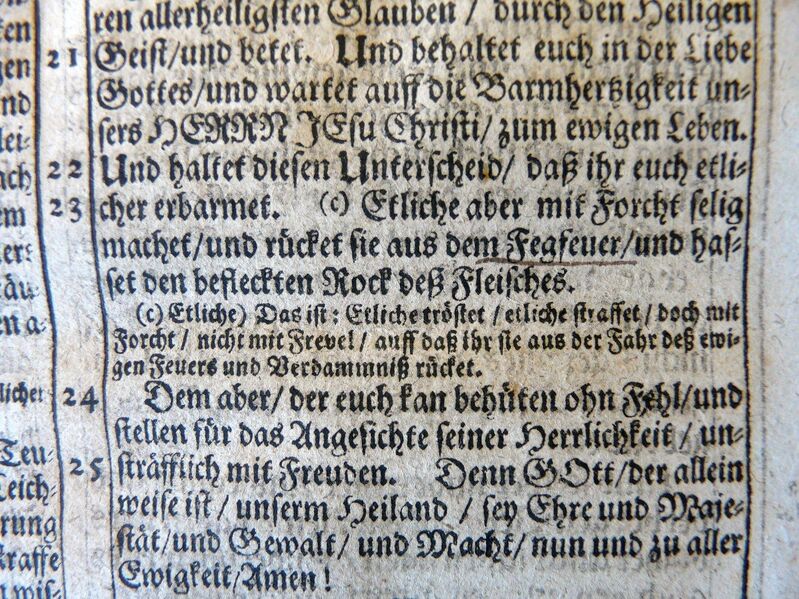 ren allerheiligsten Glauben / durch den Heiligen
21 Geist/und betet. Und behaltet euch in der Liebe
Gottes/und wartet auff die Barmhertzigkeit un-
sers HERRN JEsu Christi/ zum ewigen Leben.
22 Und haltet diesen Unterscheid/ daß ihr euch etli-
23 cher erbarmet. (c) Etliche aber mit Forcht selig
machet/und rücket sie aus dem Fegfeuer/und has-
set den befleckten Rock deß Fleisches.
(c) Etliche) Das ist: Etliche tröstet / etliche straffet / doch mit
Forcht / nicht mit Frevel / auff daß ihr sie aus der Fahr deß ewi-
gen Feuers und Verdamniß rücket.
24 Dem aber/ der euch kan behüten ohn Fehl/und
stellen für das Angesichte seiner Herrlichkeit / un-
25 sträfflich mit Freuden. Denn GOtt/der allein
weise ist / unserm Heiland / sey Ehre und Maje-
stät/und Gewalt/ und Macht/ nun und zu aller
Ewigkeit/Amen!